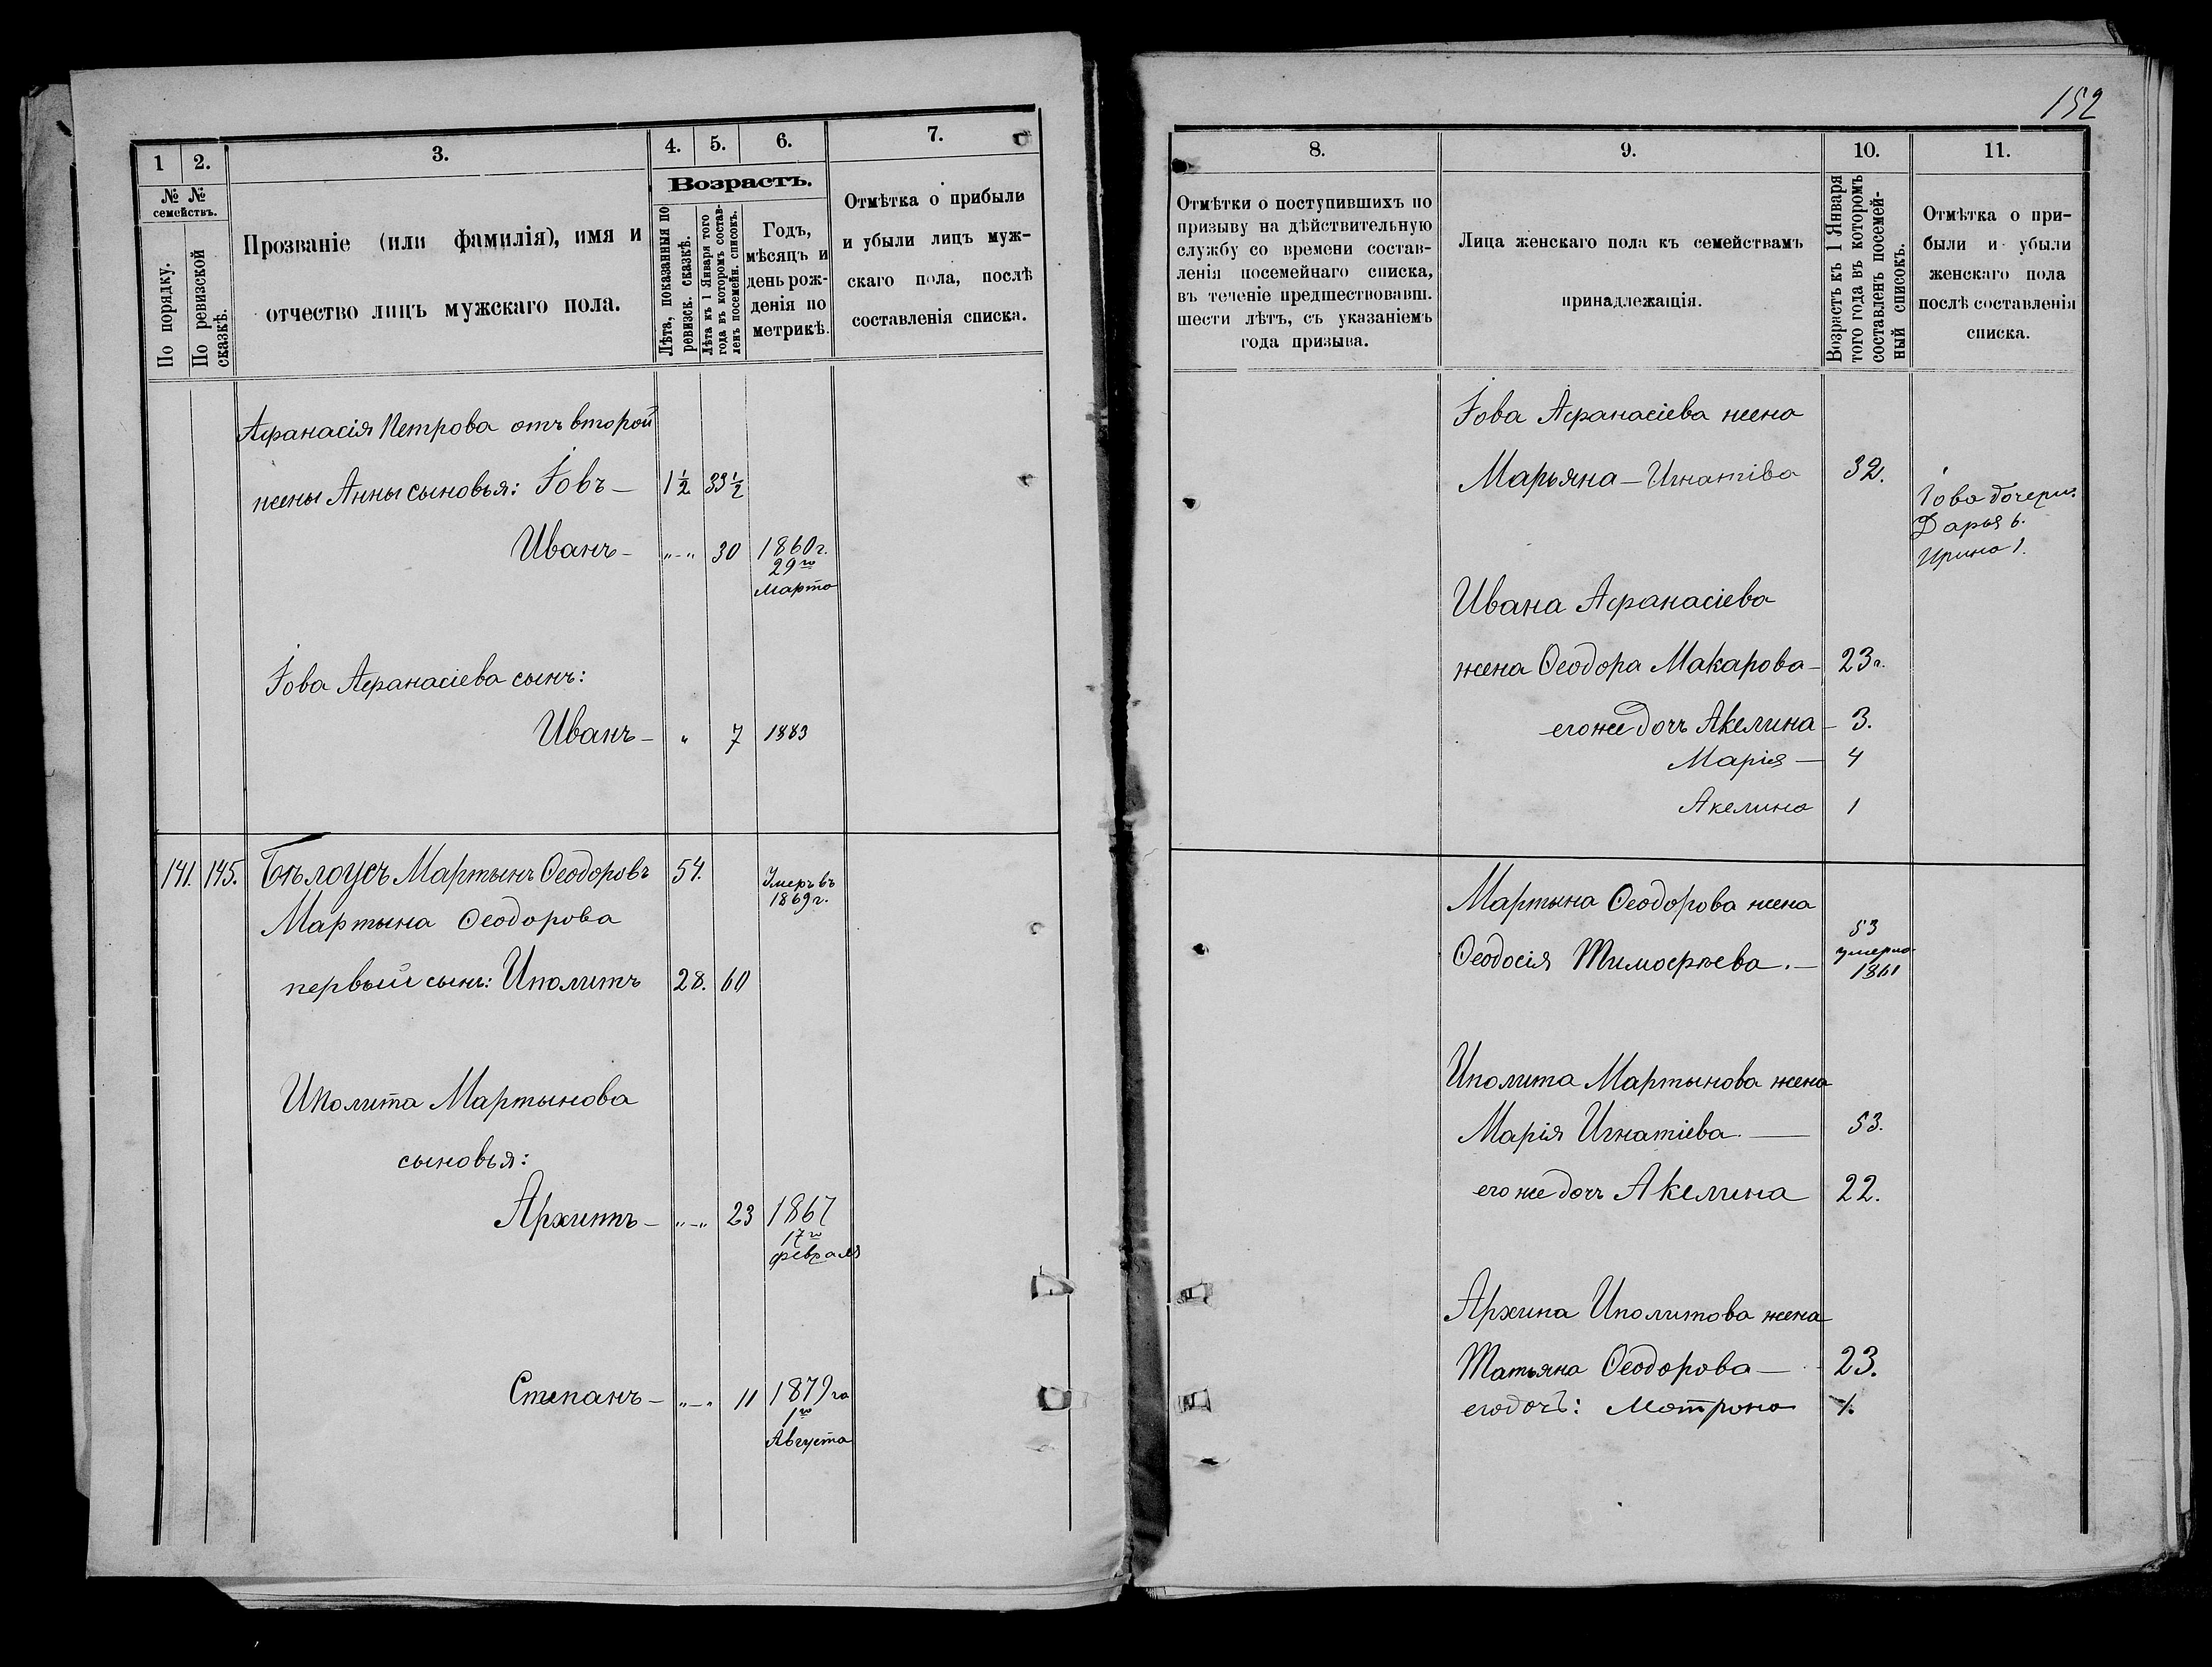 152
1 2. 3. 4. 5. 6. 7.
№ № семействъ.
По порядку.
По ревизской сказкѣ.
Прозваніе (или фамилія), имя и
отчество лицъ мужскаго пола.
Возрастъ.
Лѣта, показанныя по
ревизск. сказкѣ.
Лѣта къ 1 Января того
года въ которомъ состав-
ленъ посемейн. списокъ.
Годъ,
мѣсяцъ и
день рож-
денія по
метрикѣ.
Отмѣтка о прибыли
и убыли лицъ муж-
скаго пола, послѣ
составленія списка.
Афанасія Петрова отъ второй
жены Анны сыновья: Іовъ — 1½ 33½
Иванъ — „-„ 30 1860 г.
29го
марта
Іова Афанасіева сынъ:
Иванъ — „ 7 1883
141. 145. Бѣлоусъ Мартынъ Ѳеодоровъ 54. Умеръ въ
1869 г.
Мартына Ѳеодорова
первый сынъ: Иполитъ 28. 60
Иполита Мартынова
сыновья:
Архипъ — „-„ 23 1867
17го
февраля
Степанъ — „-„ 11 1879 го
1го
Августа
8. 9. 10. 11.
Отмѣтки о поступившихъ по
призыву на дѣйствительную
службу со времени состав-
ленія посемейнаго списка,
въ теченіе предшествовавш.
шести лѣтъ, съ указаніемъ
года призыва.
Лица женскаго пола къ семействамъ
принадлежащія.
Возрастъ къ 1 Января
того года въ которомъ
составленъ посемей-
ный списокъ.
Отмѣтка о при-
были и убыли
женскаго пола
послѣ составленія
списка.
Іова Афанасіева жена
Марьяна — Игнатіва 32.
Іова дочери:
Дарья 6.
Ирина 1.
Ивана Афанасіева
жена Ѳеодора Макарова — 23 г.
его же дочь Акелина — 3.
Марія — 4
Акелина 1
Мартына Ѳеодорова жена
Ѳеодосія Тимофѣева. — 53
умерла
1861
Иполита Мартынова жена
Марія Игнатіева. — 53.
его же дочь Акелина 22.
Архипа Иполитова жена
Татьяна Ѳеодорова — 23.
его дочь: Мотрона 1.